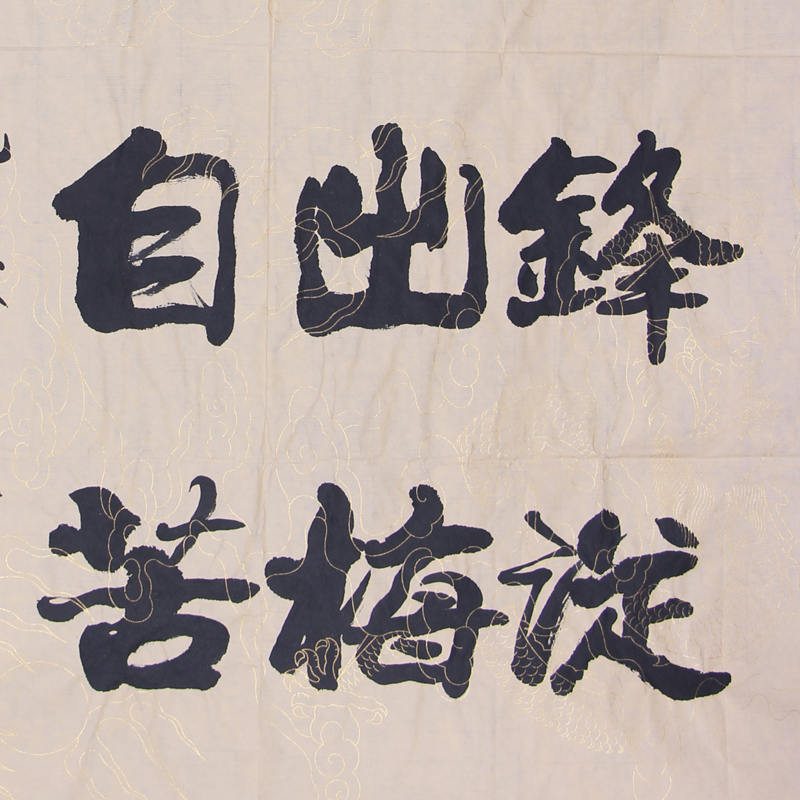 鋒從
出梅
自苦